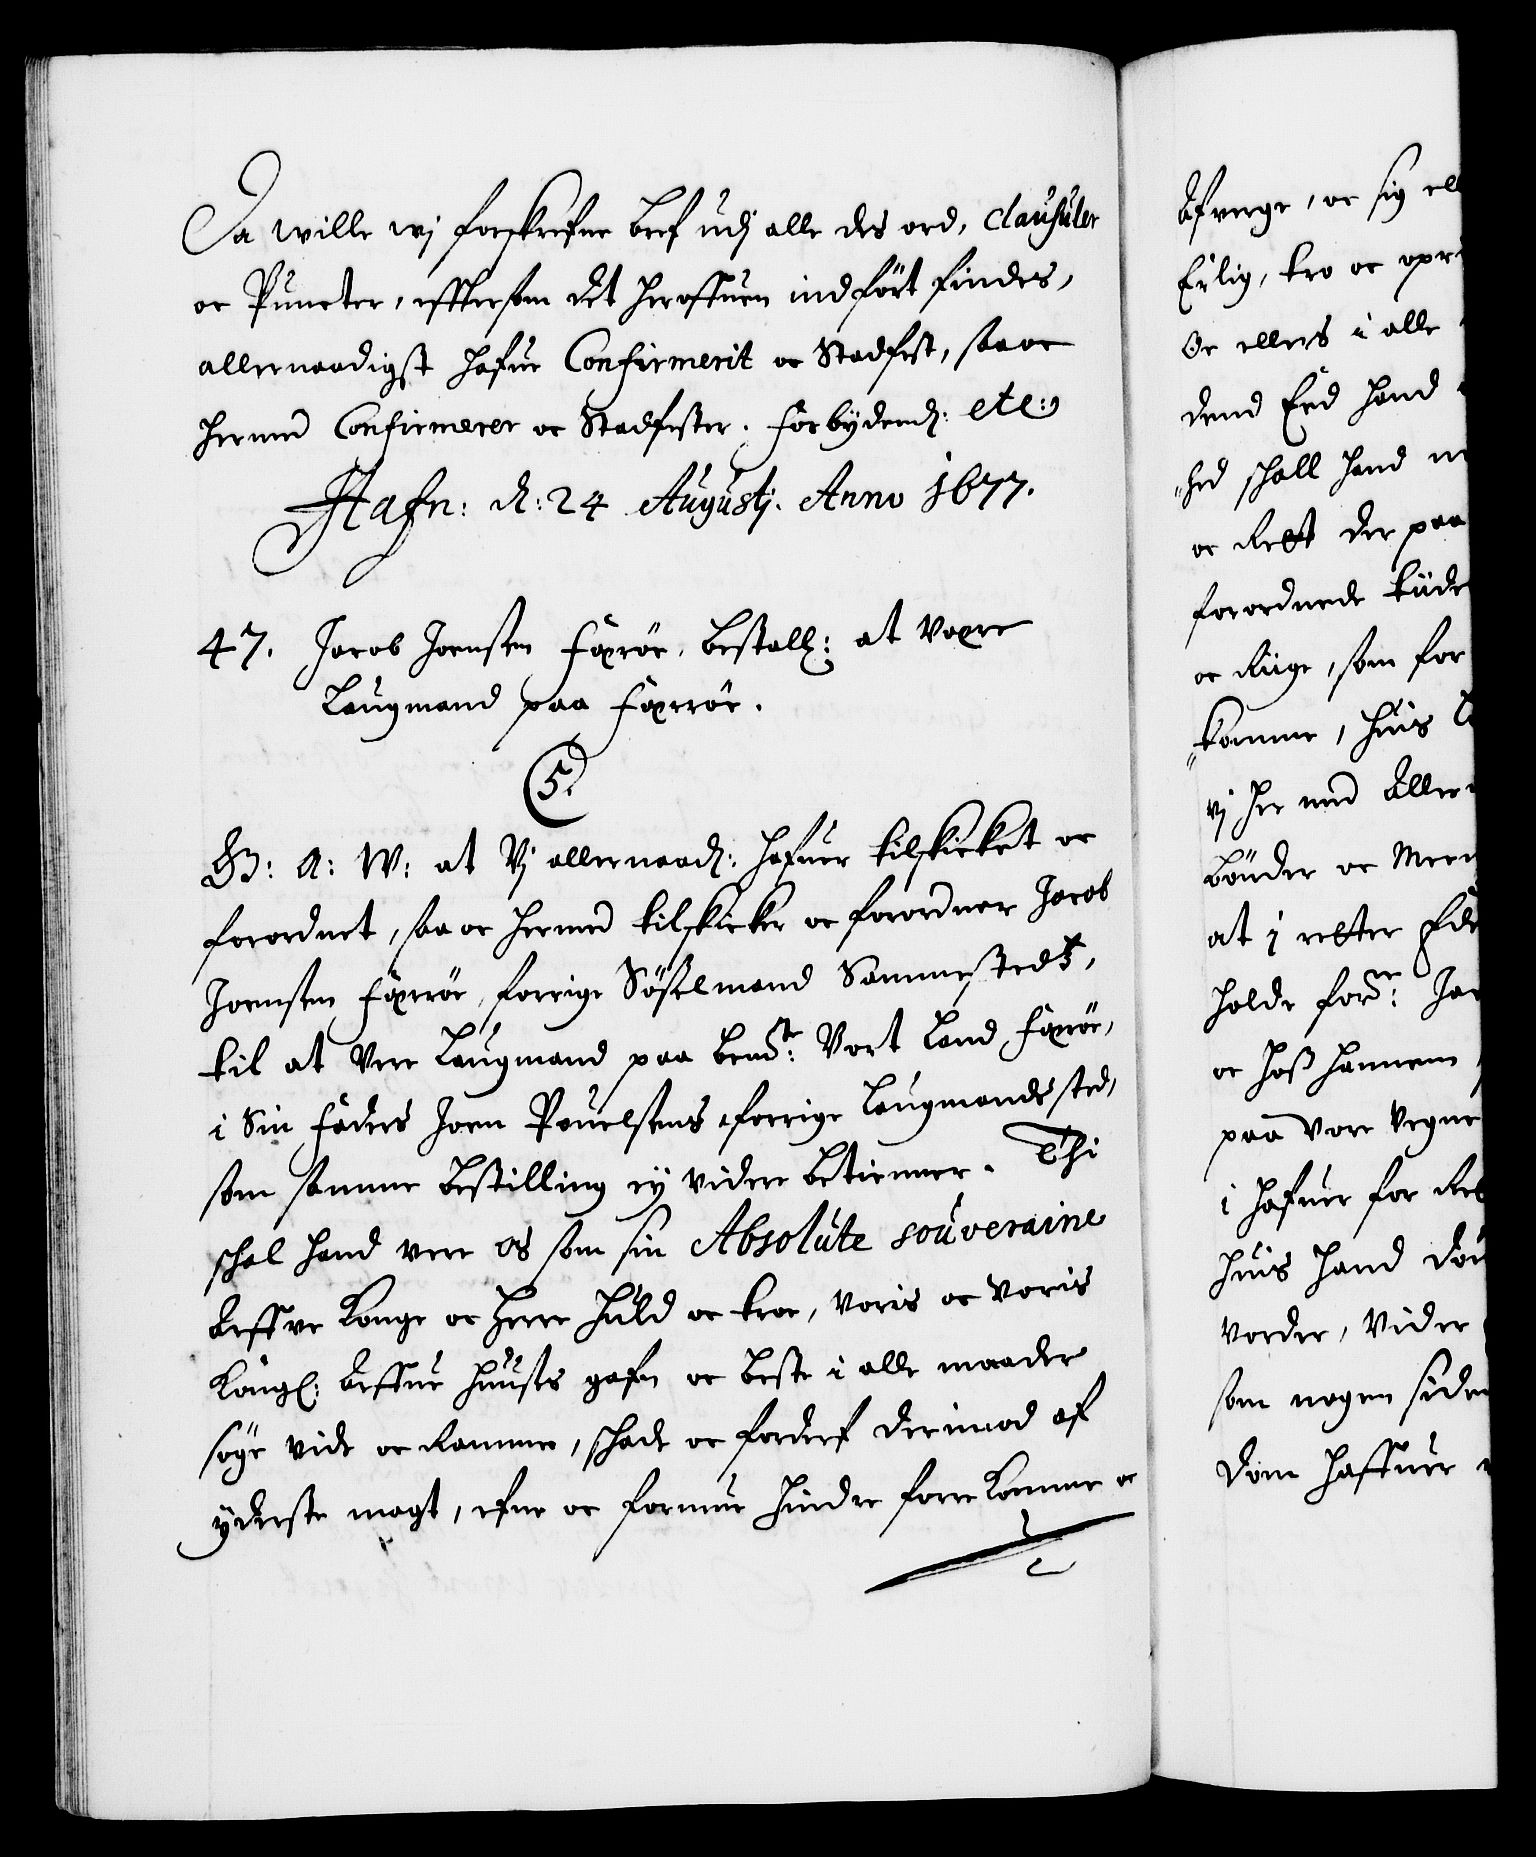 Da wille wj forskrefne bref udj alle des ord, Clausuler
oc Puncter, efftersom det her offuen indfört findes,
allernaadigst hafue Confirmerit oc Stadfest, saa oc
hermed Confirmerer oc Stadfester. Forbydend: etc:
Hafn: d: 24 Augustj. Anno 1677.
47. Jacob Joensen Færöe, bestall: at være
Laugmand paa Færröe.
5.
G: A: W: at Vj allernaad: hafuer tilskicket oc
forordnet, saa oc hermed tilskicker oc forordner Jacob
Joensen Færröe, forrige Sösselmand Sammestedtz,
til at vere Laugmand paa bemte: Vort Land Færöe,
i Sin Faders Joen Pouelsens forrige Laugmands sted,
som samme bestilling ey videre betienner. Thi
schal hand vere os som sin Absolute souveraine
Arffve Konge oc Herre huld oc troe, voris oc voris
Kongl: Arffue Huusis gafn oc beste i alle maader
söge vide oc Ramme, schade oc forderf derimod af
yderste magt, efne oc formue hindre forrekomme oc
Afverge, oc sig
Erlig, tro oc opr
Oc ellers i alle
dend Eed hand
hed schall hand
oc Rett der paa
forordnede
oc Riige, som for
komme, huis
vj her med Aller
Bönder oc Meen
at j retter Eder
holde forne: Jac
oc hoss hannem
paa vore vegne
i hafuer for Ret
huis hand
vorder, Vider
som nogen siden
dom haffuer